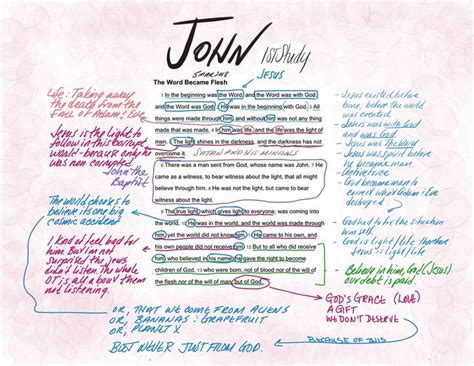 JOHN
1st Study
The Word Became Flesh
JESUS
1 In the beginning was the Word, and the Word was with God,
and the Word was God. 2 He was in the beginning with God. 3 All
things were made through him, and without him was not any thing
made that was made. 4 In him was life, and the life was the light of
men. 5 The light shines in the darkness, and the darkness has not
overcome it.
6 There was a man sent from God, whose name was John. 7 He came
as a witness, to bear witness about the light, that all might believe
through him. 8 He was not the light, but came to bear
witness about the light.
9 The true light, which gives light to everyone, was coming into
the world. 10 He was in the world, and the world was made through
him, yet the world did not know him. 11 He came to his own, and
his own people did not receive him. 12 But to all who did receive
him, who believed in his name, he gave the right to become
children of God, 13 who were born, not of blood nor of the will of
the flesh nor of the will of man, but of God.
Life: Taking away
the death from the
Fall of Adam & Eve
Jesus is the light to
follow in this
world - because only he
was not
John the
Baptist
The world chooses to
believe its one big
cosmic accident
I kind of feel bad for
him. But I'm not
surprised the jews
didn't listen. The whole
OT is all about them
not listening.
OR, THAT WE COME FROM ALIENS
OR, BANANAS & GRAPEFRUIT
OR, PLANET X
BUT NEVER JUST FROM GOD.
Jesus existed before
time, before the world
was created
Jesus was with God
and was God
Jesus was the
Jesus was spirit before
he became man
God became man to
correct what Adam & Eve
destroyed
God had to be the
himself
God is light / life
Jesus is light
Believe in him, God (Jesus)
our debt is paid.
GOD'S GRACE (LOVE)
A GIFT
WE DON'T DESERVE
BECAUSE OF THIS